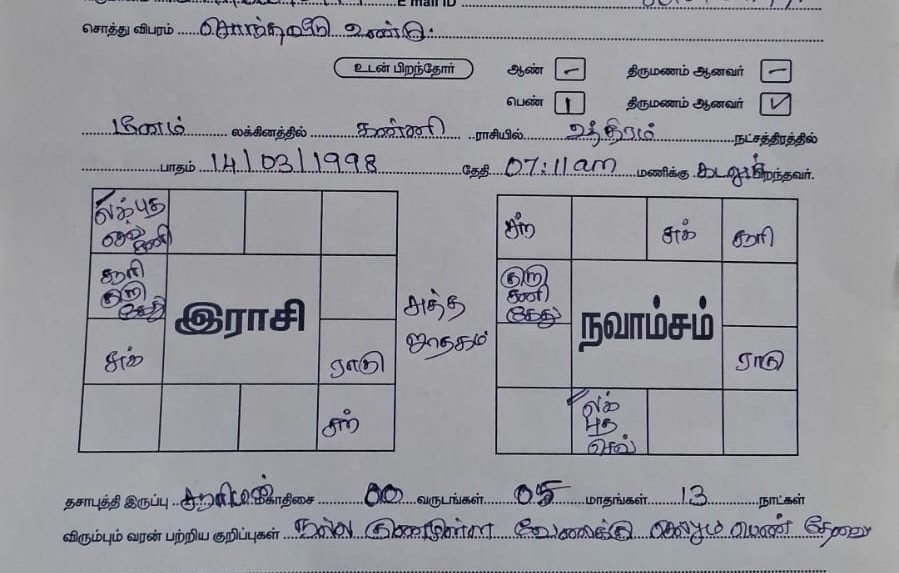 E mail ID
சொத்து விபரம் சொந்தவீடு உண்டு.
உடன் பிறந்தோர் ஆண் – திருமணம் ஆனவர் –
பெண் 1 திருமணம் ஆனவர் ✓
மீனம் லக்கினத்தில் கன்னி ராசியில் உத்திரம் நட்சத்திரத்தில்
பாதம் 14/03/1998 தேதி 07:11am மணிக்கு பிறந்தவர்.
லக் புத
செவ் சனி
சூரி
குரு
கேது
சுக்
ராகு
சந்
இராசி
அத்த
ஜாதகம்
சந் சுக் சூரி
குரு
சனி
கேது
நவாம்சம்
ராகு
லக்
புத
செவ்
தசாபுத்தி இருப்பு சூரியன் மகாதிசை 00 வருடங்கள் 05 மாதங்கள் 13 நாட்கள்
விரும்பும் வரன் பற்றிய குறிப்புகள் நல்ல குணமுள்ள வேலைக்கு செல்லும் பெண் தேவை